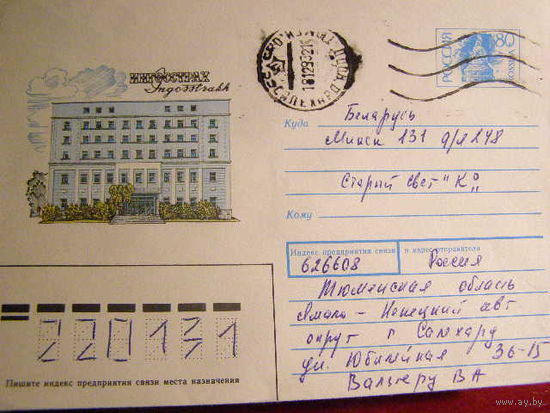 ИНГОССТРАХ
Ingosstrakh
САЛЕХАРД
РОССИЯ
80
Куда
Беларусь
Минск 131 а/я 248
Старый свет "К°"
Кому
Индекс предприятия связи и адрес отправителя
626608
Россия
Тюменская область
Ямало-Ненецкий авт
округ г Салехард
ул. Юбилейная 36-15
Вальтеру ВА
220131
Пишите индекс предприятия связи места назначения
www.ay.by